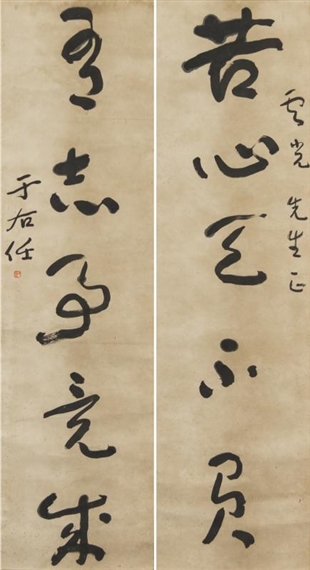 苦心天不負
云光先生正
有志事竟成
于右任